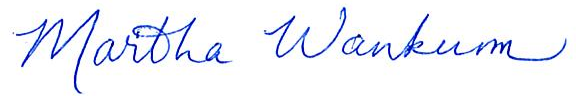 Martha Wankum